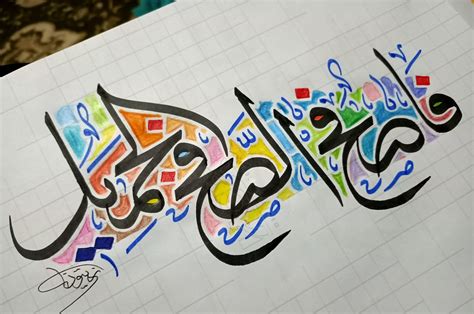 فاصفح الصفح الجميل